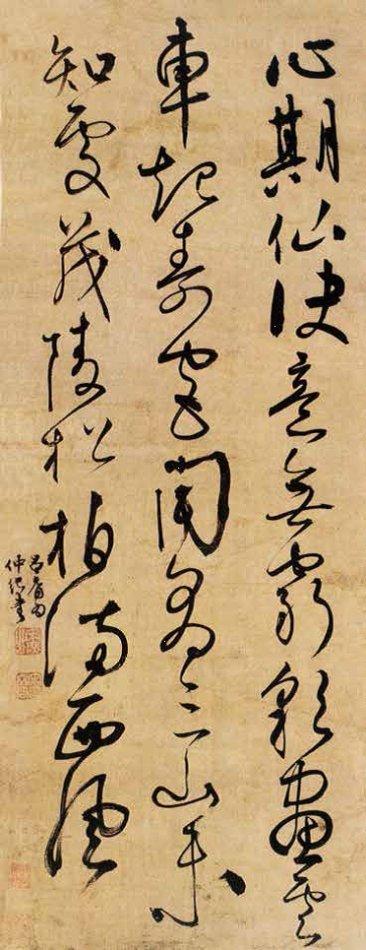 心期仙訣意無窮彩畫雲
車起壽宮聞有三山未
知處茂陵松柏滿西風
呂
仲書